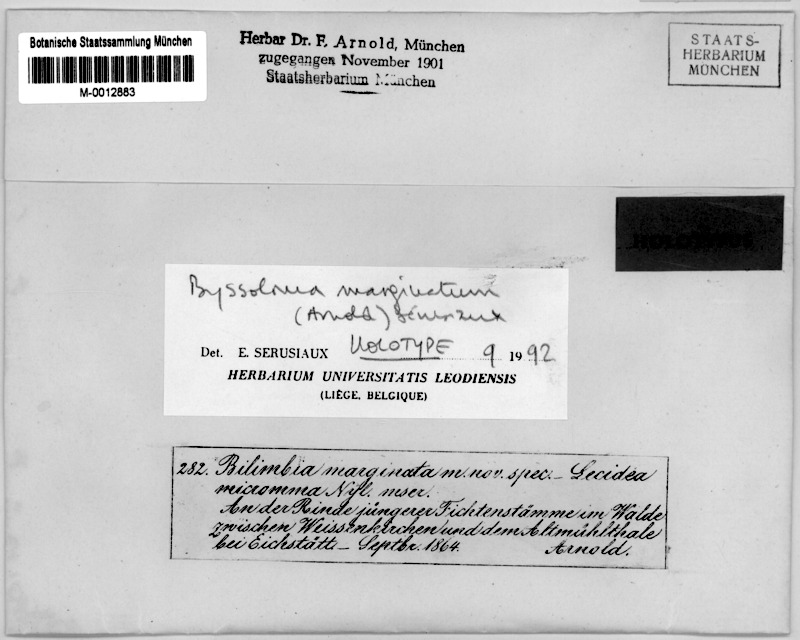 Botanische Staatssammlung München
M-0012883
Herbar Dr. F. Arnold, München
zugegangen November 1901
Staatsherbarium München
STAATS-
HERBARIUM
MÜNCHEN
HOLOTYPUS
Byssoloma marginatum
(Arnold) Sérusiaux
Det. E. SERUSIAUX HOLOTYPE 9 1992
HERBARIUM UNIVERSITATIS LEODIENSIS
(LIÈGE, BELGIQUE)
282. Bilimbia marginata m. nov. spec. – Lecidea
micromma Nyl. mscr.
An der Rinde jüngerer Fichtenstämme im Walde
zwischen Weissenkirchen und dem Altmühlthale
bei Eichstätt. – Septbr. 1864. Arnold.